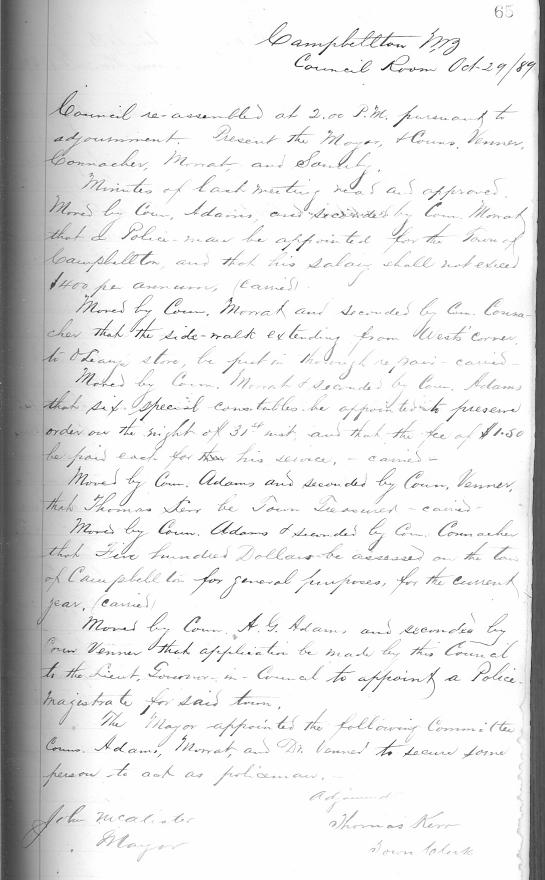 65
Campbellton NB
Council Room Oct-29/89
Council re-assembled at 2.00 P.M. pursuant to
adjournment. Present the Mayor, & Couns. Venner,
Connacher, Mowat, and
Minutes of last meeting read and approved.
Moved by Coun. Adams, and seconded by Coun. Mowat
that a Police-man be appointed for the Town of
Campbellton, and that his salary shall not exceed
$400 per annum, (carried)
Moved by Coun. Mowat and seconded by Coun. Conna-
cher that the side-walk extending from West's corner,
to O'Leary store, be put in thorough repair - carried-
Moved by Coun. Mowat & seconded by Coun. Adams
that six special constables be appointed to preserve
order on the night of 31st inst, and that the fee of $1.50
be paid each for his service, - carried -
Moved by Coun. Adams and seconded by Coun. Venner,
that Thomas Kerr be Town Treasurer - carried-
Moved by Coun. Adams & seconded by Coun. Connacher
that Five hundred Dollars be assessed on the town
of Campbellton for general purposes, for the current
year, (carried)
Moved by Coun. A.G. Adams and seconded by
Coun Venner that application be made by this Council
to the Lieut, Governor-in-Council to appoint a Police-
magistrate for said town.
The Mayor appointed the following Committee
Couns. Adams, Mowat, and Dr. Venner to secure some
person to act as policeman. -
Adjourned
John McAlister
Thomas Kerr
Mayor
Town Clerk